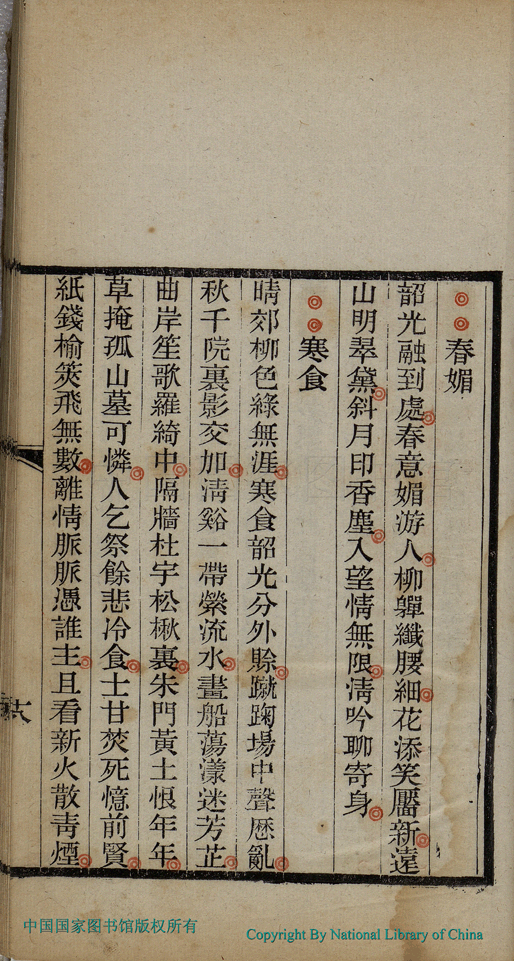 春媚
韶光融到處春意媚游人柳嚲纖腰細花添笑靨新遠
山明翠黛斜月印香塵入望情無限清吟聊寄身
寒食
晴郊柳色綠無涯寒食韶光分外賒蹴踘場中聲歷亂
秋千院裏影交加清谿一帶縈流水畫船蕩漾迷芳芷
曲岸笙歌羅綺中隔牆杜宇松楸裏朱門黃土恨年年
草掩孤山墓可憐人乞祭餘悲冷食士甘焚死憶前賢
紙錢榆莢飛無數離情脈脈憑誰主且看新火散靑煙
中国国家图书馆版权所有
Copyright By National Library of China